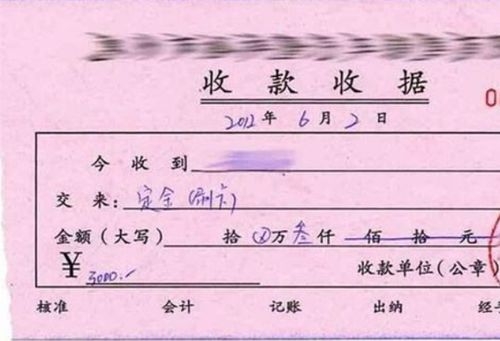 收款收据
0
2012年6月2日
今收到
交来：定金（刷卡）
金额（大写） 拾⊗万叁仟 佰 拾 元
¥ 3000.- 收款单位（公章）
核准 会计 记账 出纳 经